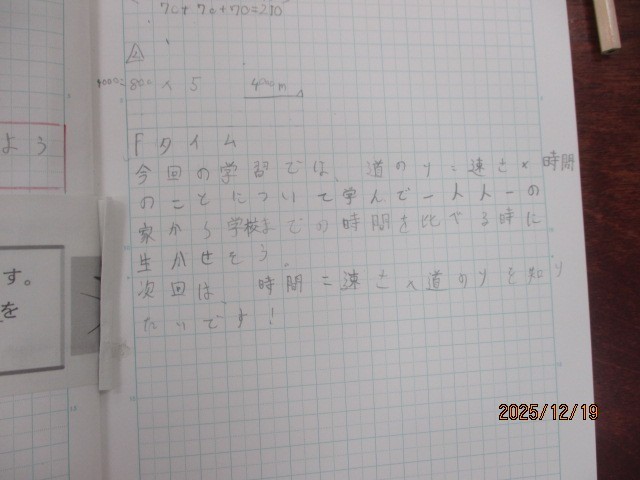 70+70+70=210
4000=800×5 4000m
Fタイム
今回の学習では、道のり=速さ×時間
のことについて学んで一人人一の
家から学校までの時間を比べる時に
生かせそう。
次回は、時間=速さ×道のりを知り
たいです!
よう
す。
を
2025/12/19